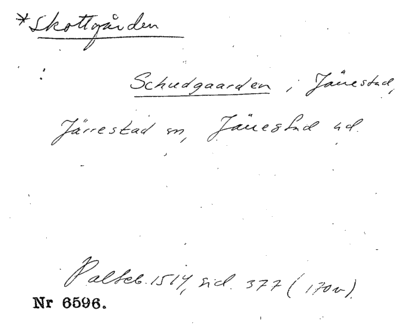 *Skottgården
Schudgaarden i Järrestad,
Järrestad sn, Järrestad hd.
Palteb. 1514, sid. 377 (170v).
Nr 6596.